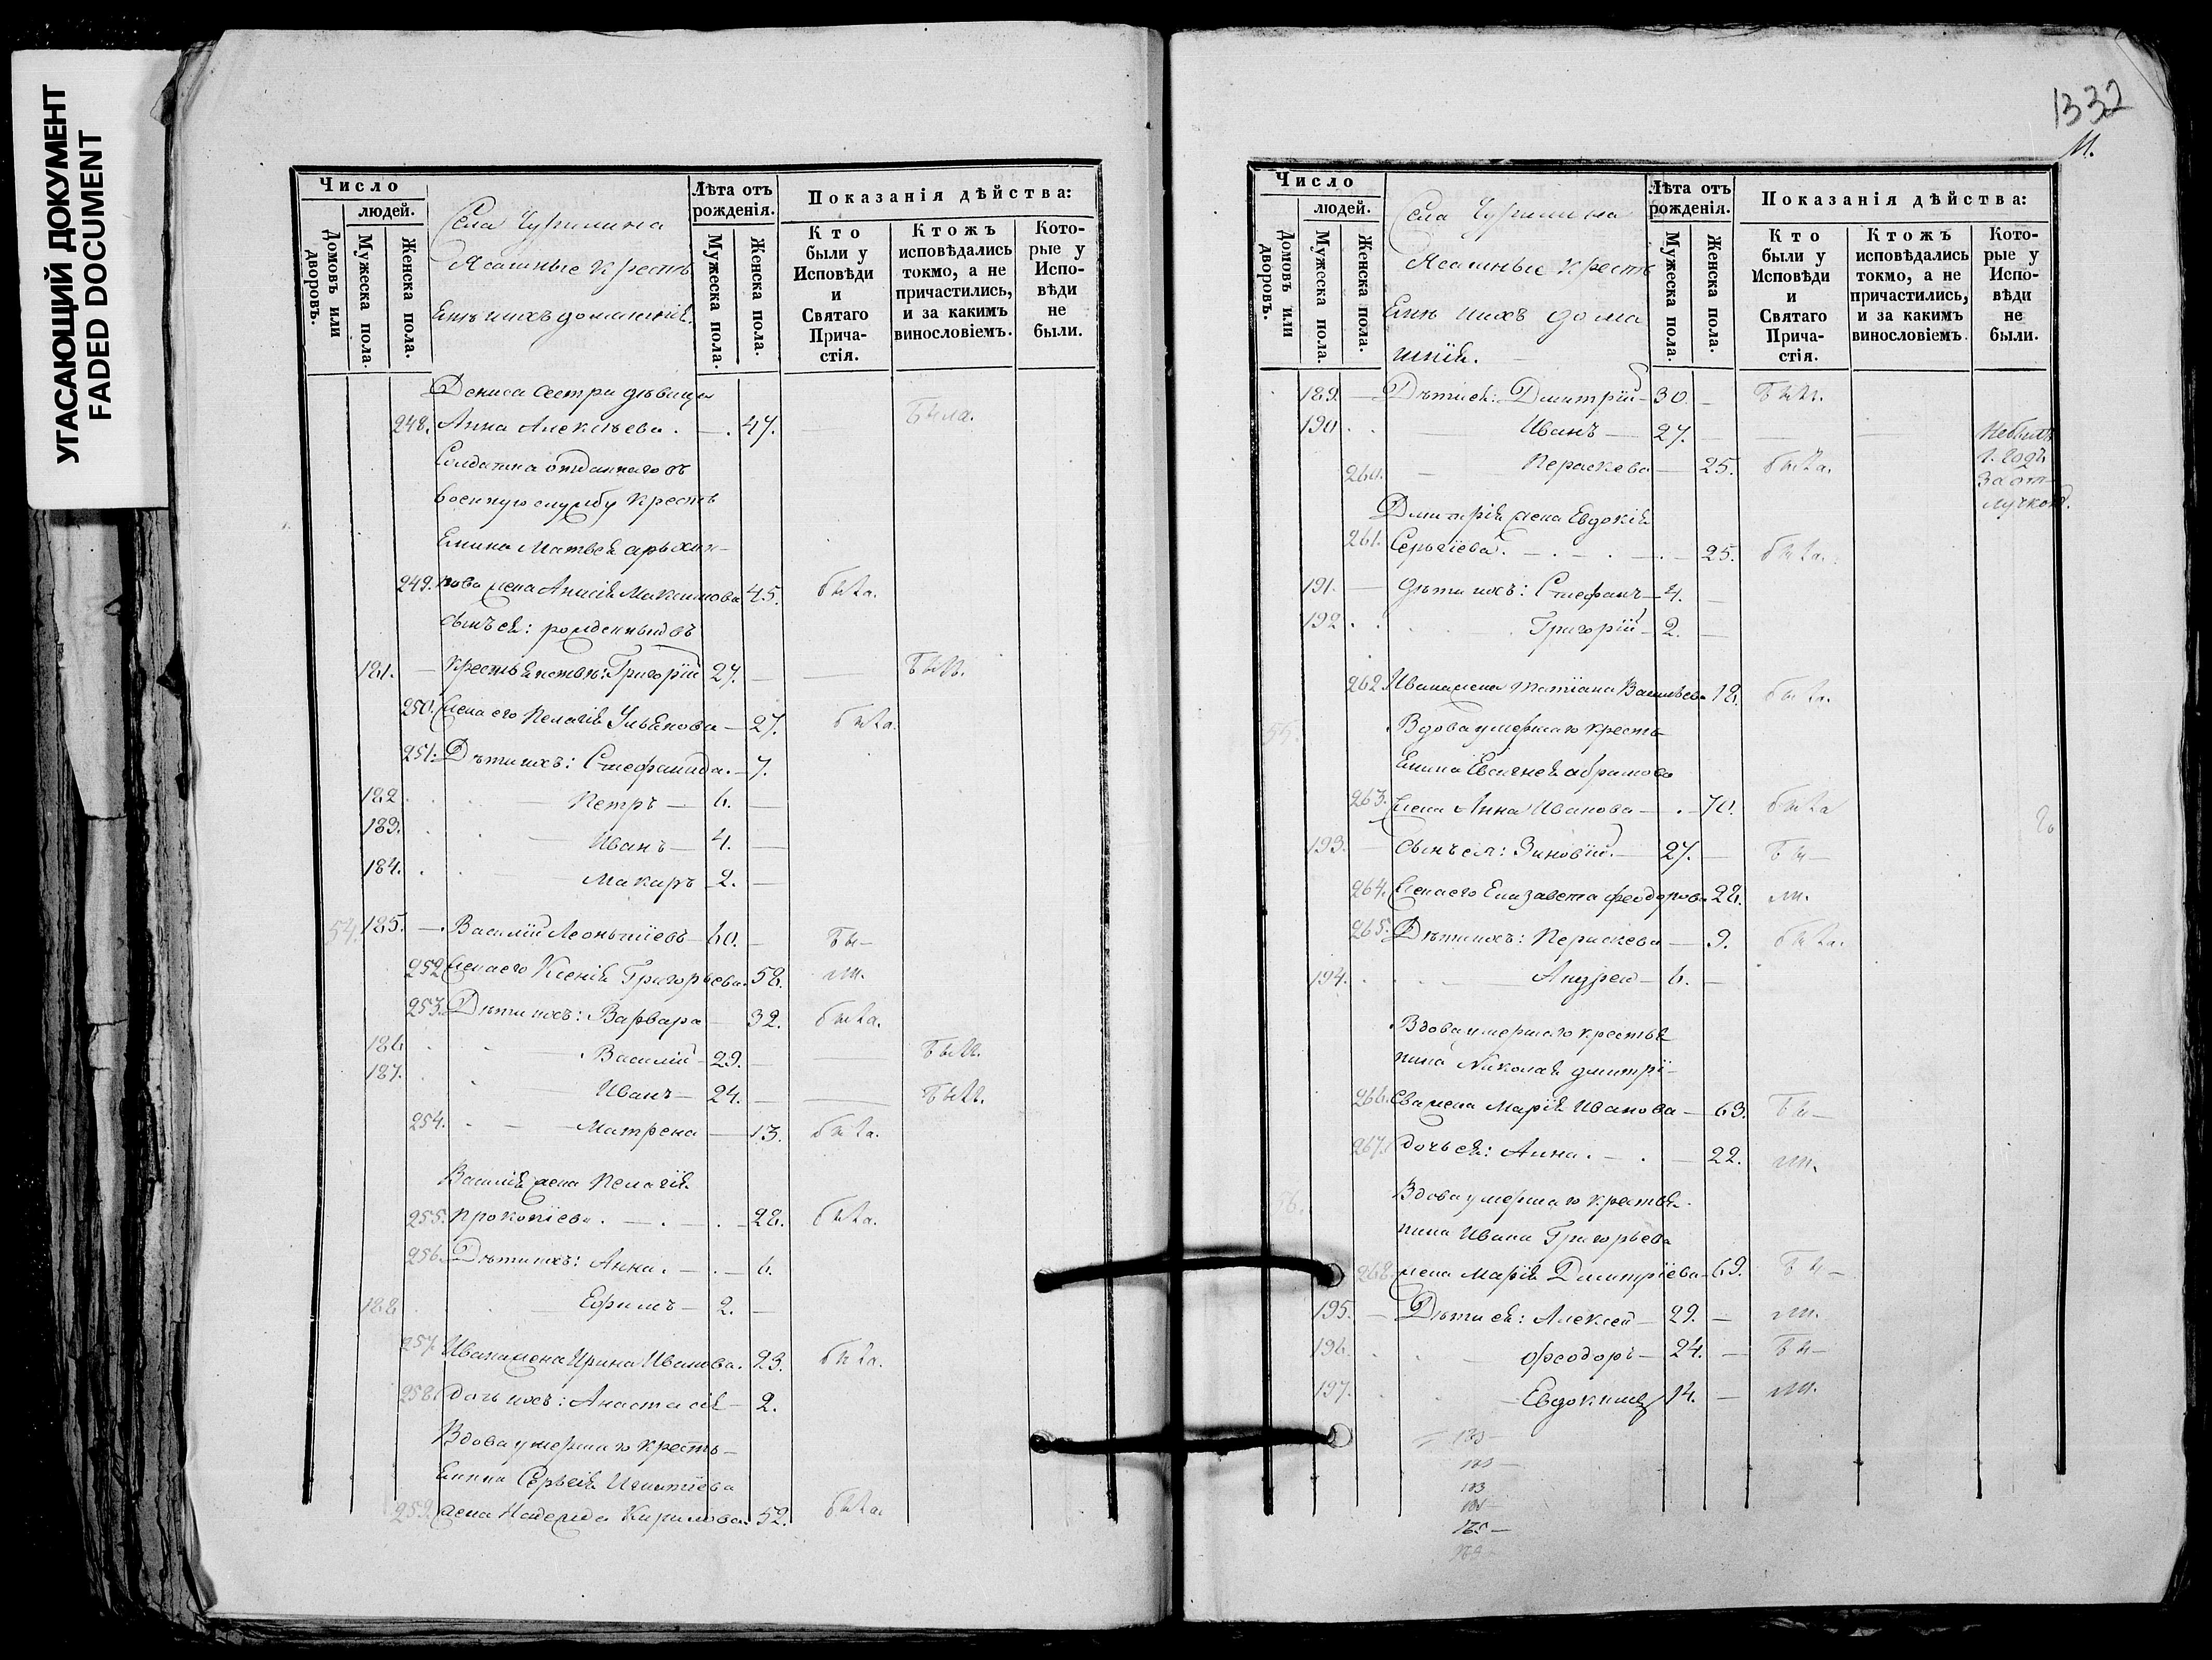 УГАСАЮЩИЙ ДОКУМЕНТ
FADED DOCUMENT
Число
людей.
Домовъ или дворовъ.
Мужеска пола.
Женска пола.
Села Чурилина
Ясашные кресть
яне ихъ домашніе.
Лѣта отъ рожденія.
Мужеска пола.
Женска пола.
Показанія дѣйства:
Кто были у Исповѣди и Святаго Прича-стія.
Ктожъ исповѣдались токмо, а не причастились, и за какимъ винословіемъ.
Кото-рые у Испо-вѣди не были.
Дениса сестра дѣвица
248. Анна Алексѣева. — . 47. — Была.
Солдатка отданнаго въ
военную службу кресть
янина Матвея
249. жена Анисія Максимова 45. была.
сынъ ея: рожденный въ
181. — крестьянствѣ: Григорій 27. — — Былъ.
250. Жена его Пелагія Ульянова — 27. была.
251. Дѣти ихъ: Стефанида. — 7.
182. — Петръ — 6. —
183. — Иванъ — 4. —
184. — Макаръ 2. —
54. 185. — Василій Леонтіевъ — 60. — Бы—
252. Жена его Ксенія Григорьева. 58. ли.
253. Дѣти ихъ: Варвара — 32. была.
186. Василій — 29. — — Былъ.
187. — Иванъ — 24. — — Былъ.
254. — Матрена — 13. была.
Василія жена Пелагія
255. Прокопіева. — . — . — 28. была.
256. Дѣти ихъ: Анна. — . — 6.
188. — Ефимъ — 2. —
257. Ивана жена Ирина Иванова. 23. была.
258. дочь ихъ: Анастасія — 2.
Вдова умершаго кресть—
янина Сергія Игнатіева
259. жена Надежда Кирилова. 52. была.
1332
Число
людей.
Домовъ или дворовъ.
Мужеска пола.
Женска пола.
Села Чурилина
Ясашные кресть
яне ихъ дома
шніе.
Лѣта отъ рожденія.
Мужеска пола.
Женска пола.
Показанія дѣйства:
Кто были у Исповѣди и Святаго Прича-стія.
Ктожъ исповѣдались токмо, а не причастились, и за какимъ винословіемъ.
Кото-рые у Испо-вѣди не были.
189. — Дѣти ея: Дмитрій — 30. — Былъ.
190. — Иванъ — 27. — — — Небылъ
260. — Параскева — 25. была. 1. годъ
за от—
лучкою.
Дмитрія жена Евдокія
261. Сергіева. — . — . — . — 25. была.
191. — Дѣти ихъ: Стефанъ — 4. —
192. — Григорій — 2. —
262. Ивана жена Татіана Васильева 18. была.
55. Вдова умершаго кресть—
янина Евсигнея Абрамова
263. Жена Анна Иванова — . — 70. была
193. — Сынъ ея: Зиновій. — 27. — Бы—
264. Жена его Елизавета Феодорова 28. ли.
265. Дѣти ихъ: Параскева — 9. была.
194. — Андрей — 6. —
Вдова умершаго крестья
нина Николая Дмитрі—
266. ева жена Марія Иванова — 63. Бы—
267. Дочь ея: Анна. — . — 22. ли.
56. Вдова умершаго крестья—
нина Ивана Григорьева
268. жена Марія Дмитріева — 69. Бы—
195. — Дѣти ея: Алексей — 29. — ли.
196. — Феодоръ — 24. — Бы—
197. — Евдокимъ 14. — ли.